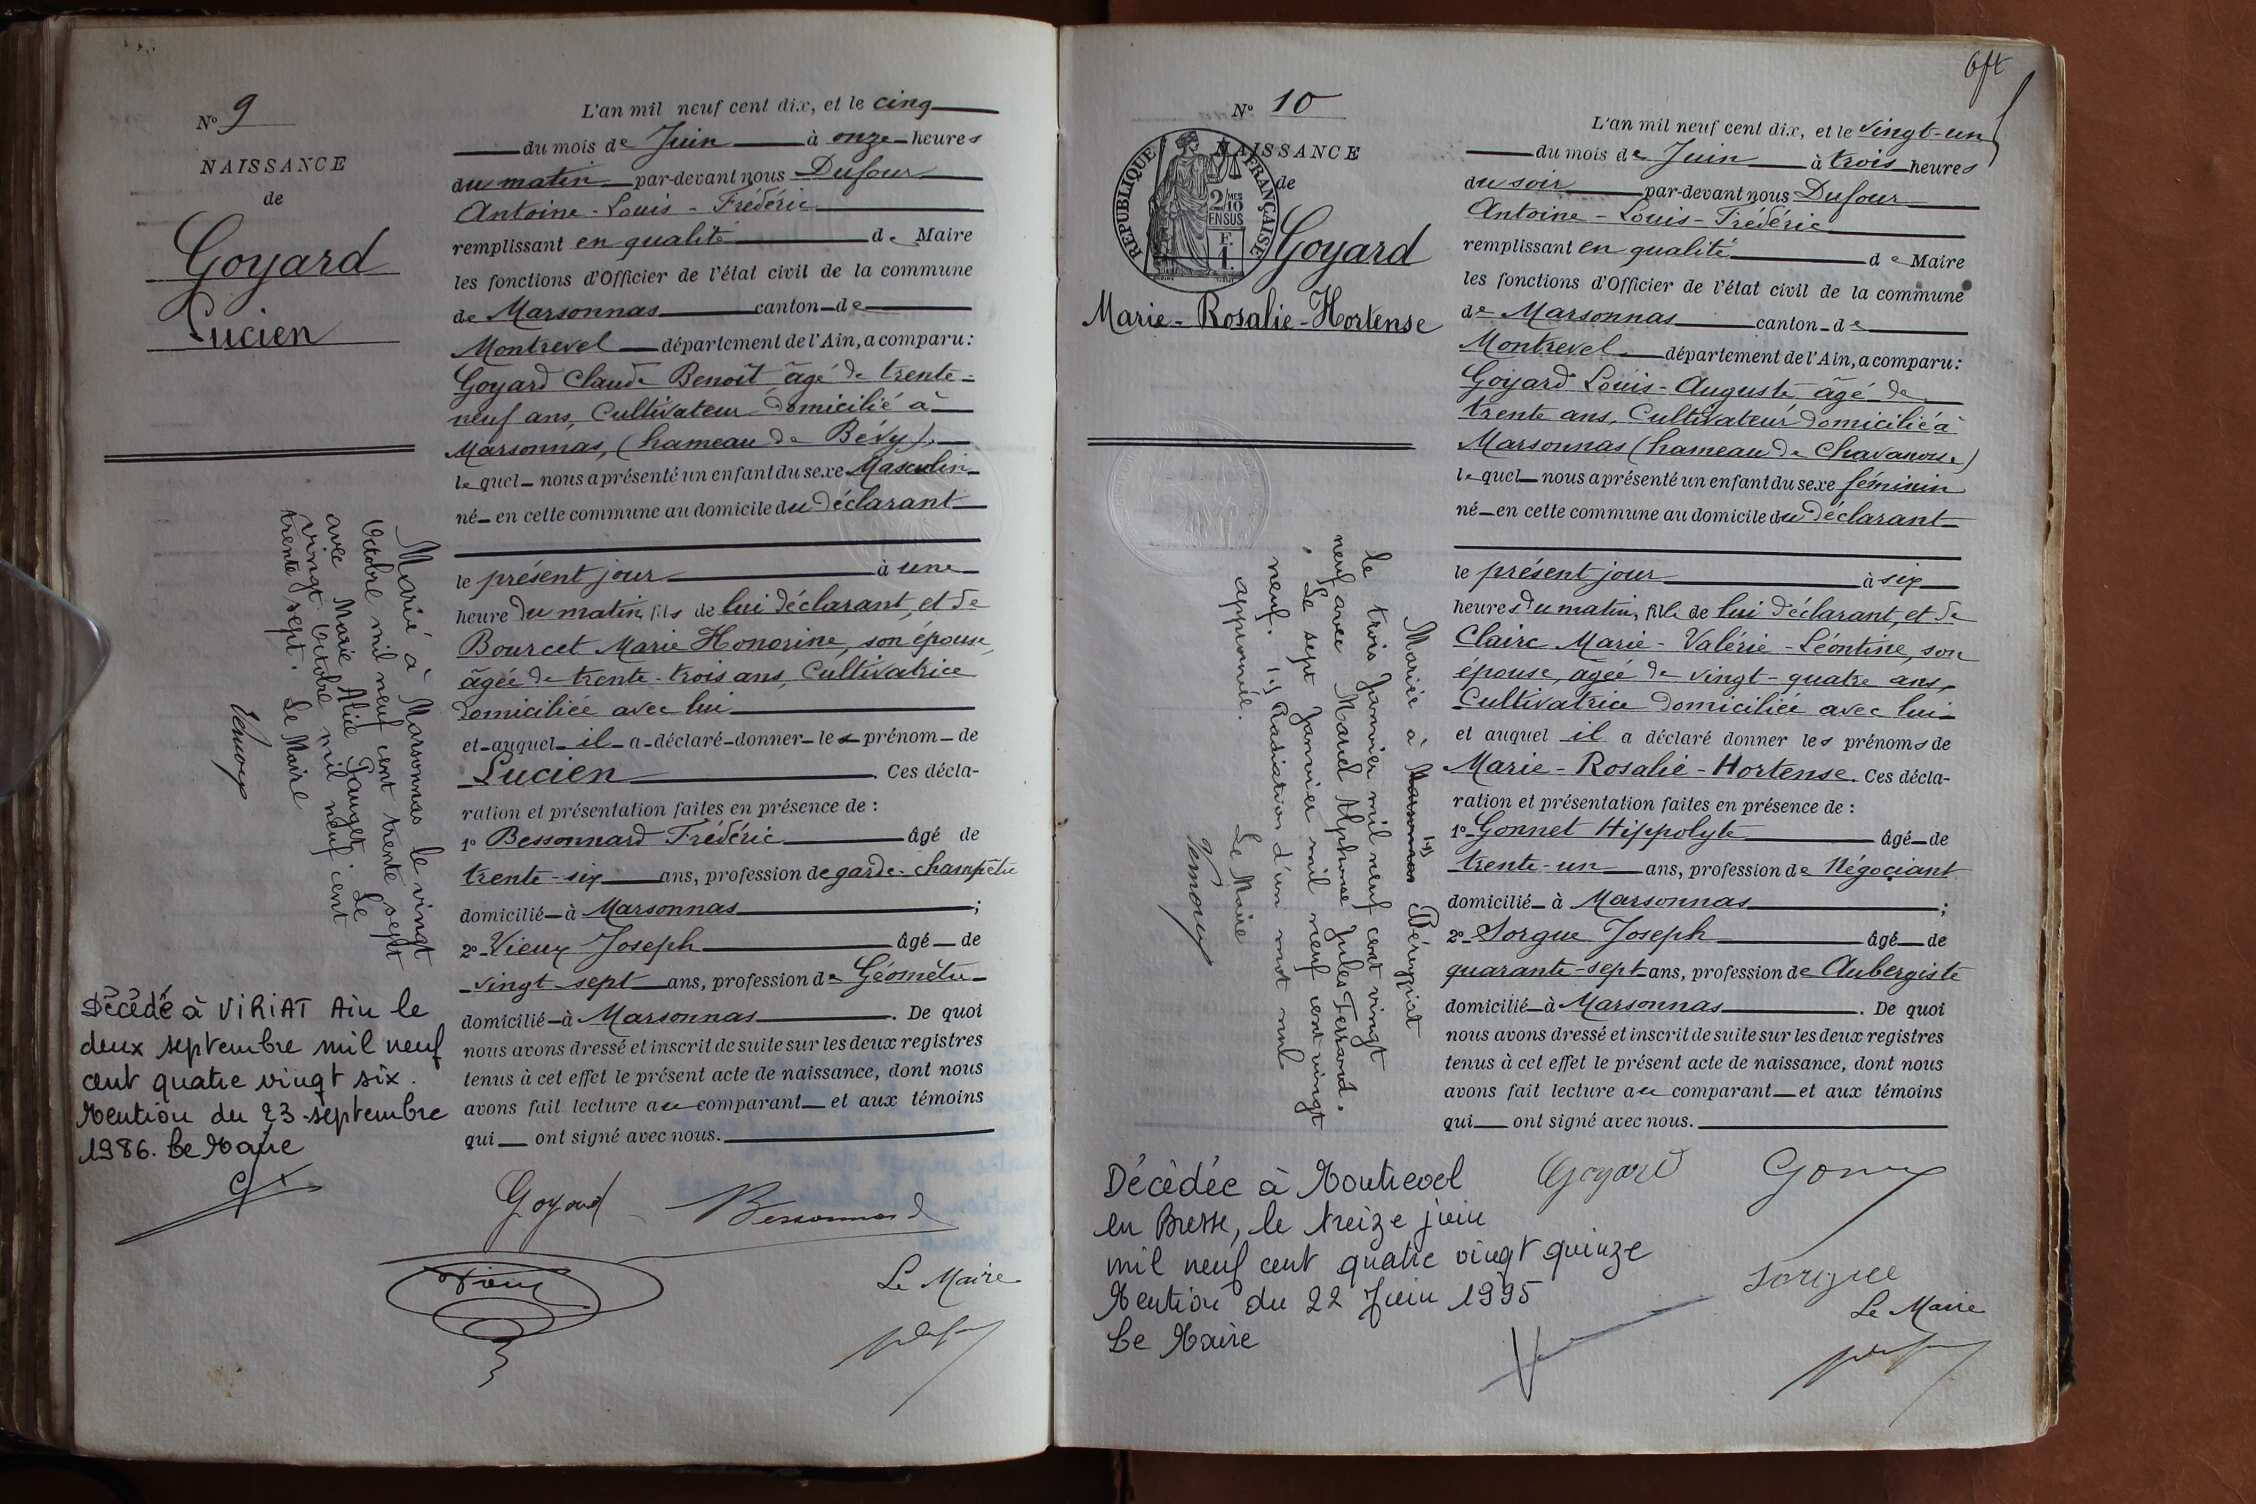 N° 9
NAISSANCE
de
Goyard
Lucien
Marié à Marsonnas le vingt
Octobre mil neuf cent trente sept
avec Marie Alice Pauget. Le
vingt Octobre mil neuf cent
trente sept. Le Maire
Décédé à VIRIAT Ain le
deux septembre mil neuf
cent quatre vingt six.
Mention du 23 septembre
1986. Le Maire
L'an mil neuf cent dix, et le cinq
du mois de Juin à onze heures
du matin par-devant nous Dufour
Antoine-Louis-Frédéric
remplissant en qualité de Maire
les fonctions d'Officier de l'état civil de la commune
de Marsonnas canton de
Montrevel département de l'Ain, a comparu:
Goyard Claude Benoît âgé de trente-
neuf ans, Cultivateur domicilié à
Marsonnas, (hameau de Bévy).
lequel nous a présenté un enfant du sexe Masculin
né en cette commune au domicile du déclarant
le présent jour à une
heure du matin, fils de lui déclarant, et de
Bourcet Marie Honorine, son épouse,
âgée de trente-trois ans, Cultivatrice
domiciliée avec lui
et auquel il a déclaré donner le prénom de
Lucien. Ces décla-
ration et présentation faites en présence de :
1° Bessonnard Frédéric âgé de
trente-six ans, profession de garde-champêtre
domicilié à Marsonnas ;
2° Vieux Joseph âgé de
vingt-sept ans, profession de Géomètre
domicilié à Marsonnas. De quoi
nous avons dressé et inscrit de suite sur les deux registres
tenus à cet effet le présent acte de naissance, dont nous
avons fait lecture au comparant et aux témoins
qui ont signé avec nous.
Goyard Bessonnard
Vieux
Le Maire
N° 10
NAISSANCE
de
RÉPUBLIQUE FRANÇAISE
2/10 MES
EN SUS
F.
1.
Goyard
Marie-Rosalie-Hortense
Mariée à Marsonnas (1) Béréziat
le trois Janvier mil neuf cent vingt
neuf avec Marcel Alphonse Jules Ferrand.
Le sept Janvier mil neuf cent vingt
neuf. (1) Radiation d'un mot nul
approuvée. Le Maire
L'an mil neuf cent dix, et le vingt-un
du mois de Juin à trois heures
du soir par-devant nous Dufour
Antoine-Louis-Frédéric
remplissant en qualité de Maire
les fonctions d'Officier de l'état civil de la commune
de Marsonnas canton de
Montrevel département de l'Ain, a comparu:
Goyard Louis-Auguste âgé de
trente ans, Cultivateur domicilié à
Marsonnas (hameau de Chavanose)
lequel nous a présenté un enfant du sexe féminin
né en cette commune au domicile du déclarant
le présent jour à six
heures du matin, fille de lui déclarant, et de
Claire Marie-Valérie-Léontine, son
épouse, âgée de vingt-quatre ans,
Cultivatrice domiciliée avec lui
et auquel il a déclaré donner les prénoms de
Marie-Rosalie-Hortense. Ces décla-
ration et présentation faites en présence de :
1° Gonnet Hippolyte âgé de
trente-un ans, profession de Négociant
domicilié à Marsonnas ;
2° Sorgue Joseph âgé de
quarante-sept ans, profession de Aubergiste
domicilié à Marsonnas. De quoi
nous avons dressé et inscrit de suite sur les deux registres
tenus à cet effet le présent acte de naissance, dont nous
avons fait lecture au comparant et aux témoins
qui ont signé avec nous.
Décédée à Montrevel
en Bresse, le treize juin
mil neuf cent quatre vingt quinze
Mention du 22 Juin 1995
Le Maire
Goyard
Sorgue
Le Maire